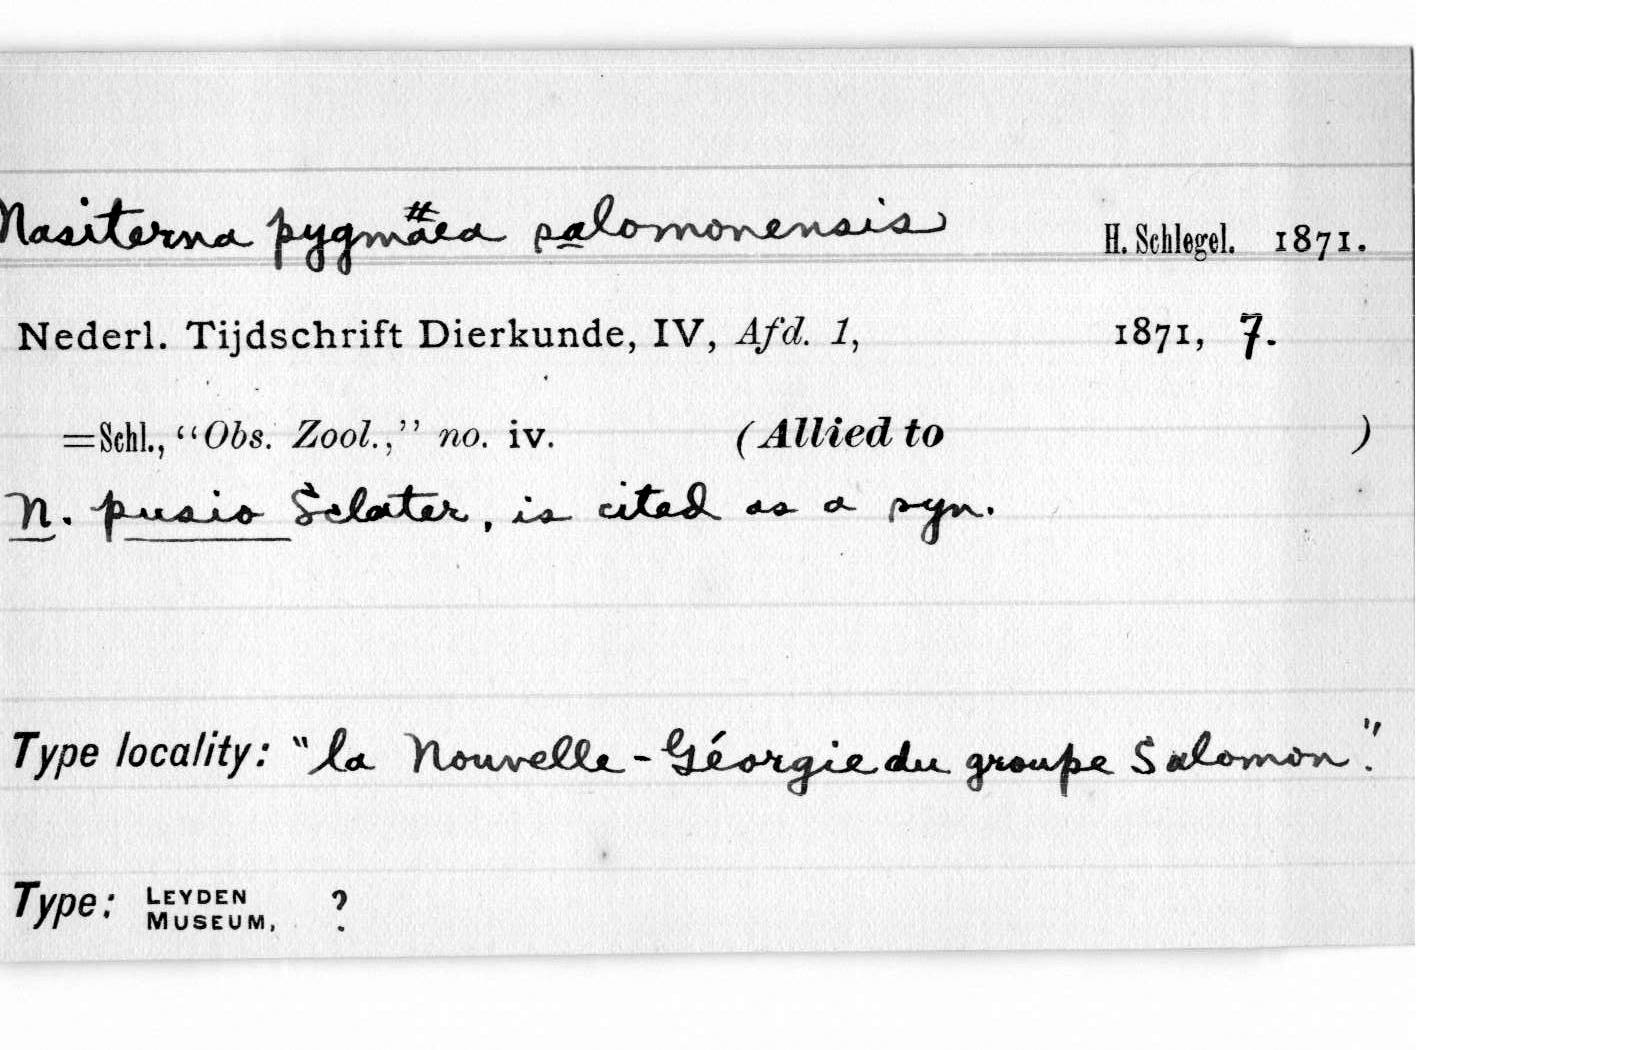 Nasiterna pygmaea salomonensis H. Schlegel. 1871.
Nederl. Tijdschrift Dierkunde, IV, Afd. 1, 1871, 7.
=Schl., “Obs. Zool.,” no. iv. (Allied to )
N. pusio Sclater, is cited as a syn.
Type locality: "la Nouvelle-Géorgie du groupe Salomon."
Type: LEYDEN MUSEUM, ?